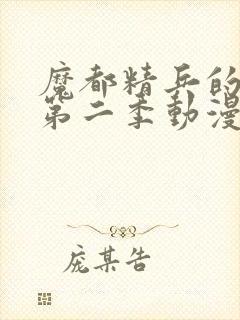 魔都精兵的
第二季動漫
庞某告